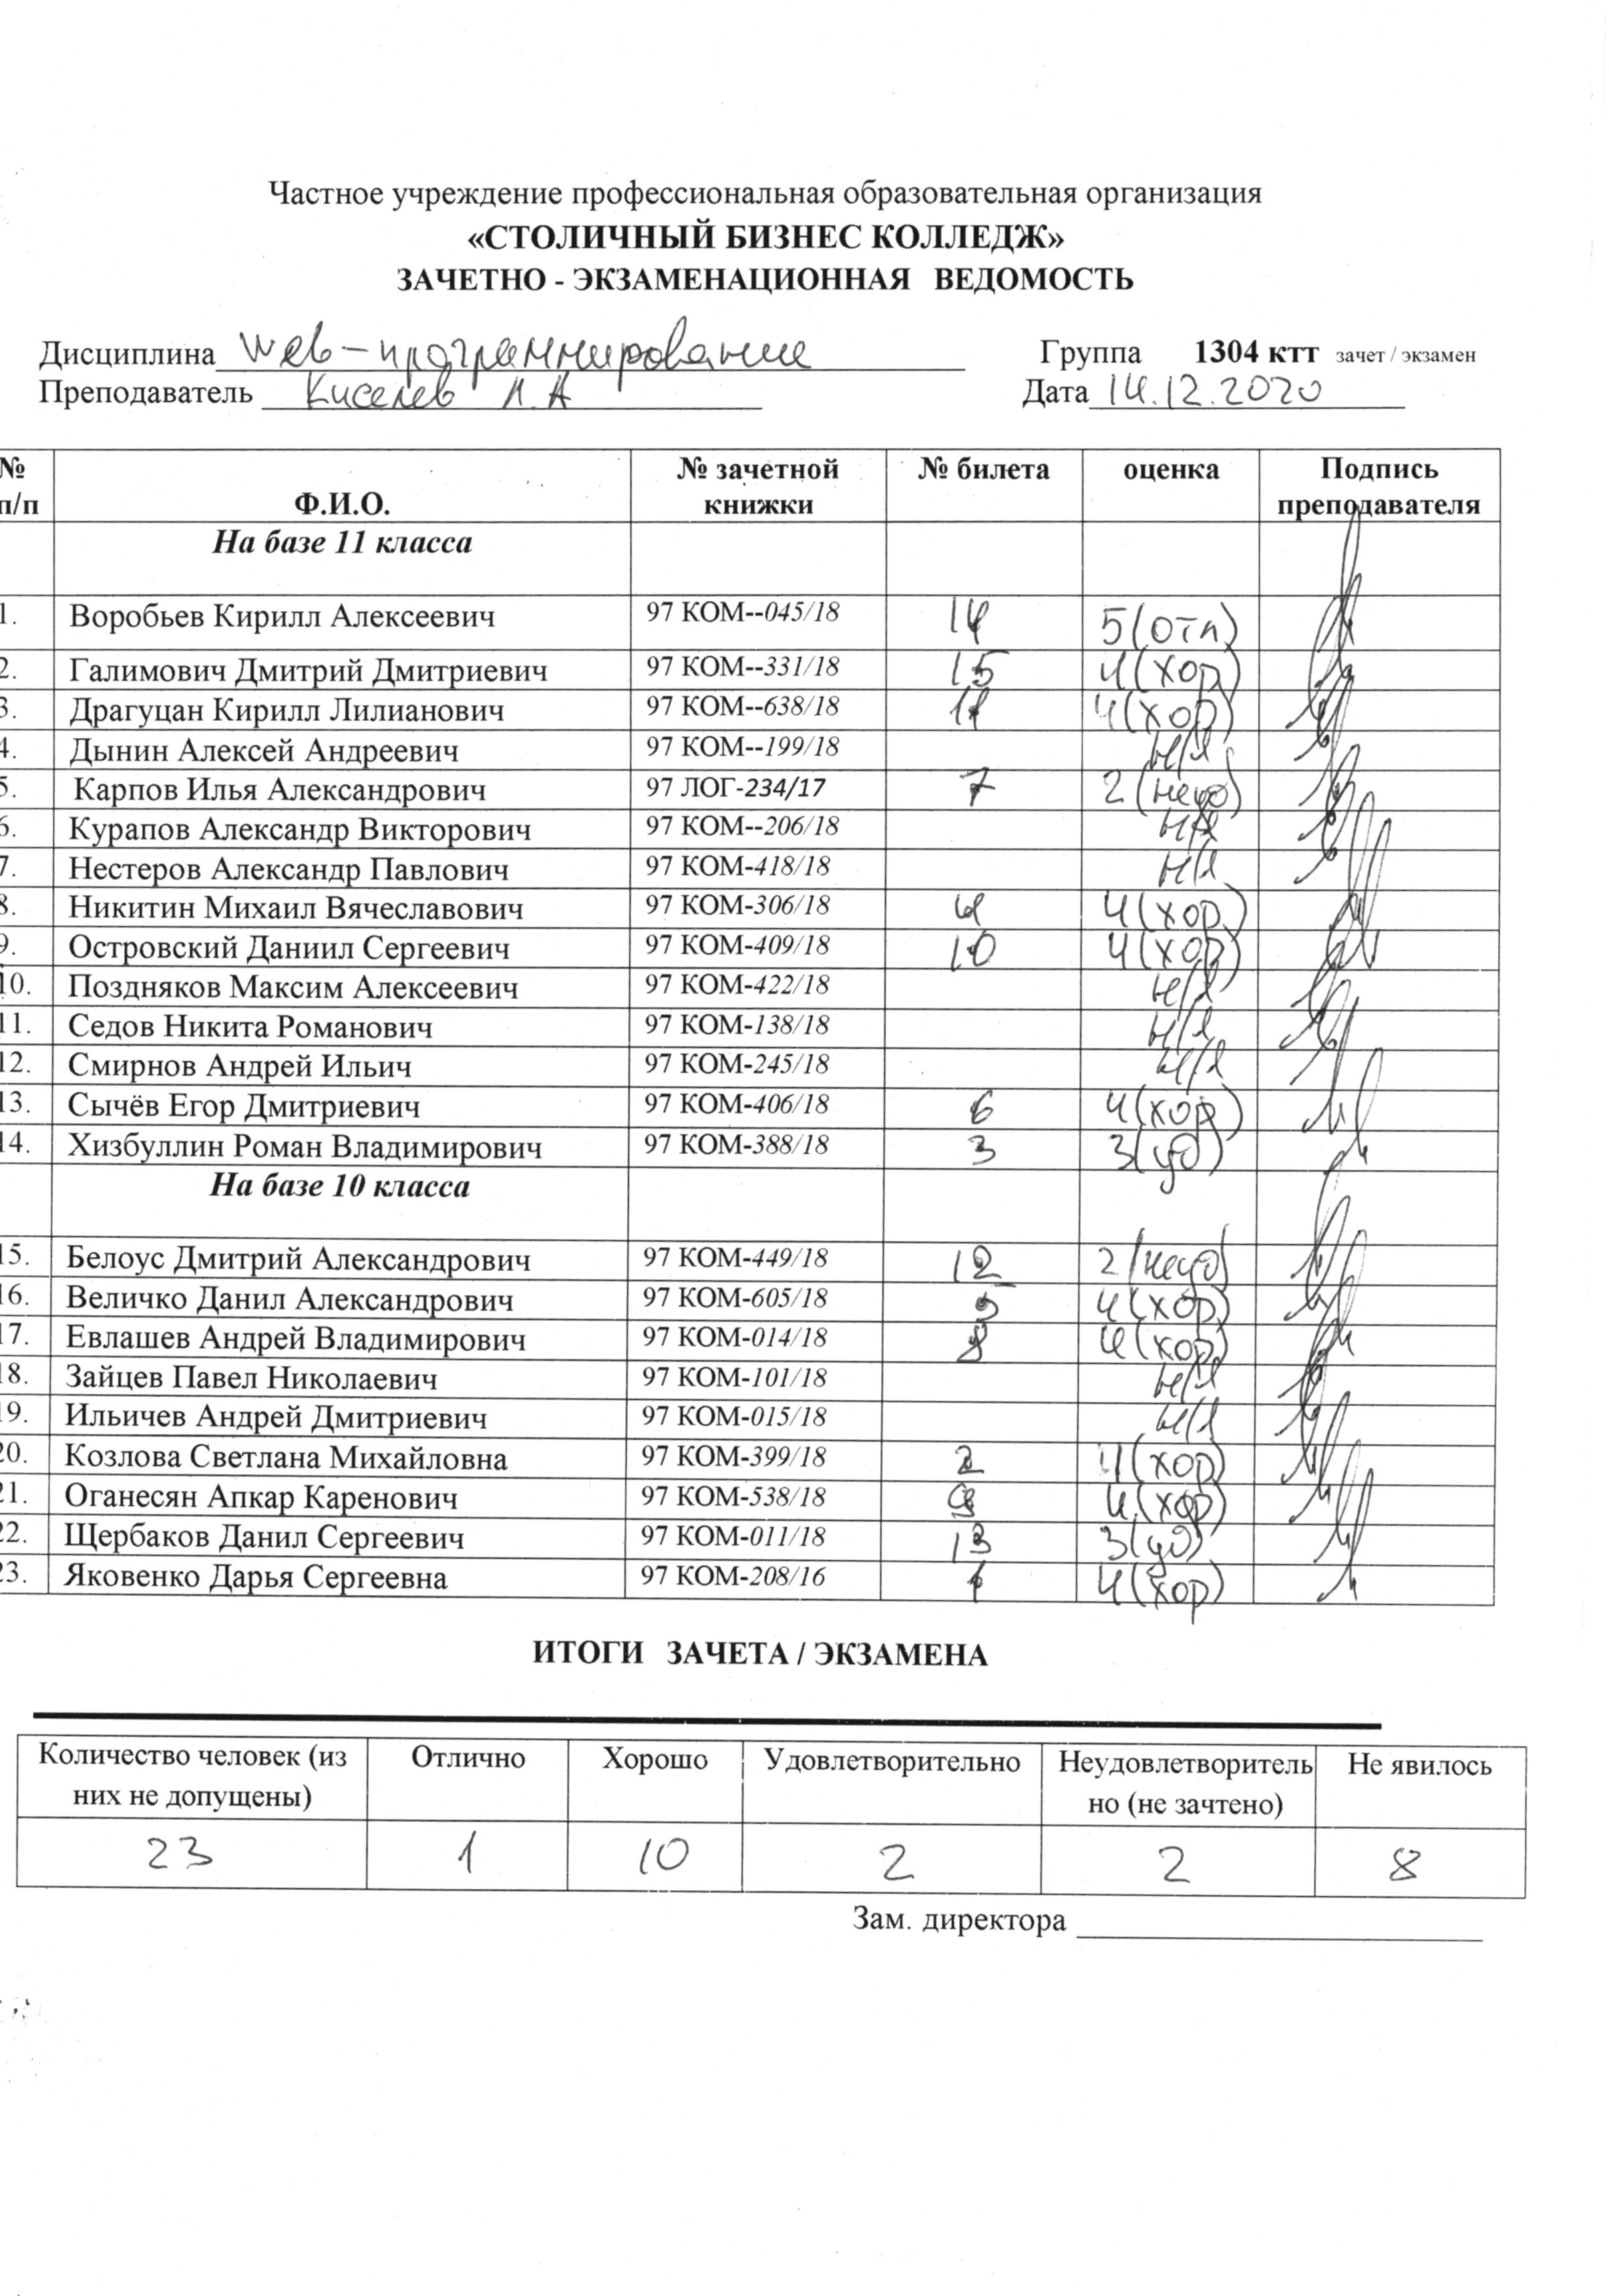 Частное учреждение профессиональная образовательная организация
«СТОЛИЧНЫЙ БИЗНЕС КОЛЛЕДЖ»
ЗАЧЕТНО - ЭКЗАМЕНАЦИОННАЯ ВЕДОМОСТЬ
Дисциплина web-программирование Группа 1304 ктт зачет / экзамен
Преподаватель Киселев Дата 14.12.2020
№ п/п Ф.И.О. № зачетной книжки № билета оценка Подпись преподавателя
На базе 11 класса
1. Воробьев Кирилл Алексеевич 97 КОМ--045/18 14 5(отл)
2. Галимович Дмитрий Дмитриевич 97 КОМ--331/18 15 4(хор)
3. Драгуцан Кирилл Лилианович 97 КОМ--638/18 11 4(хор)
4. Дынин Алексей Андреевич 97 КОМ--199/18 н/я
5. Карпов Илья Александрович 97 ЛОГ-234/17 7 2(неуд)
6. Курапов Александр Викторович 97 КОМ--206/18 н/я
7. Нестеров Александр Павлович 97 КОМ-418/18 н/я
8. Никитин Михаил Вячеславович 97 КОМ-306/18 4 4(хор)
9. Островский Даниил Сергеевич 97 КОМ-409/18 10 4(хор)
10. Поздняков Максим Алексеевич 97 КОМ-422/18 н/я
11. Седов Никита Романович 97 КОМ-138/18 н/я
12. Смирнов Андрей Ильич 97 КОМ-245/18 н/я
13. Сычёв Егор Дмитриевич 97 КОМ-406/18 6 4(хор)
14. Хизбуллин Роман Владимирович 97 КОМ-388/18 3 3(уд)
На базе 10 класса
15. Белоус Дмитрий Александрович 97 КОМ-449/18 12 2(неуд)
16. Величко Данил Александрович 97 КОМ-605/18 5 4(хор)
17. Евлашев Андрей Владимирович 97 КОМ-014/18 8 4(хор)
18. Зайцев Павел Николаевич 97 КОМ-101/18 н/я
19. Ильичев Андрей Дмитриевич 97 КОМ-015/18 н/я
20. Козлова Светлана Михайловна 97 КОМ-399/18 2 4(хор)
21. Оганесян Апкар Каренович 97 КОМ-538/18 9 4(хор)
22. Щербаков Данил Сергеевич 97 КОМ-011/18 13 3(уд)
23. Яковенко Дарья Сергеевна 97 КОМ-208/16 1 4(хор)
ИТОГИ ЗАЧЕТА / ЭКЗАМЕНА
Количество человек (из них не допущены) Отлично Хорошо Удовлетворительно Неудовлетворитель но (не зачтено) Не явилось
23 1 10 2 2 8
Зам. директора